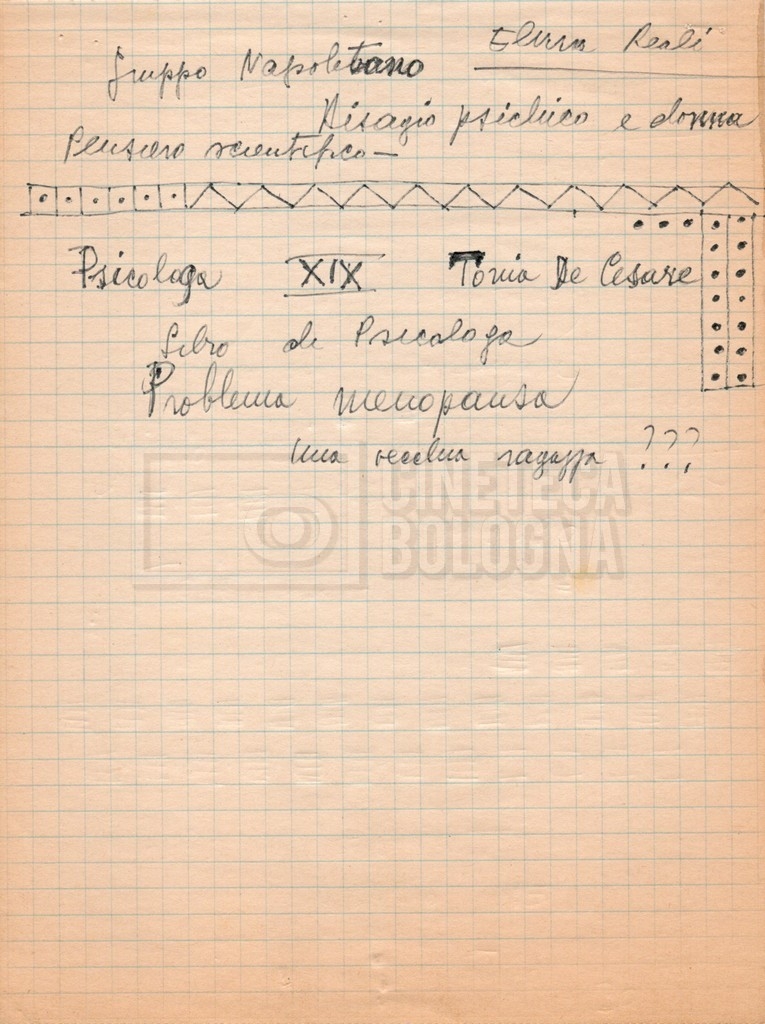 Elvira Reali
Gruppo Napoletano
Disagio psichico e donna
Pensiero scientifico —
Psicologa XIX Tonia De Cesare
Libro di Psicologa
Problema menopausa
Una vecchia ragazza ???
CINETECA
BOLOGNA